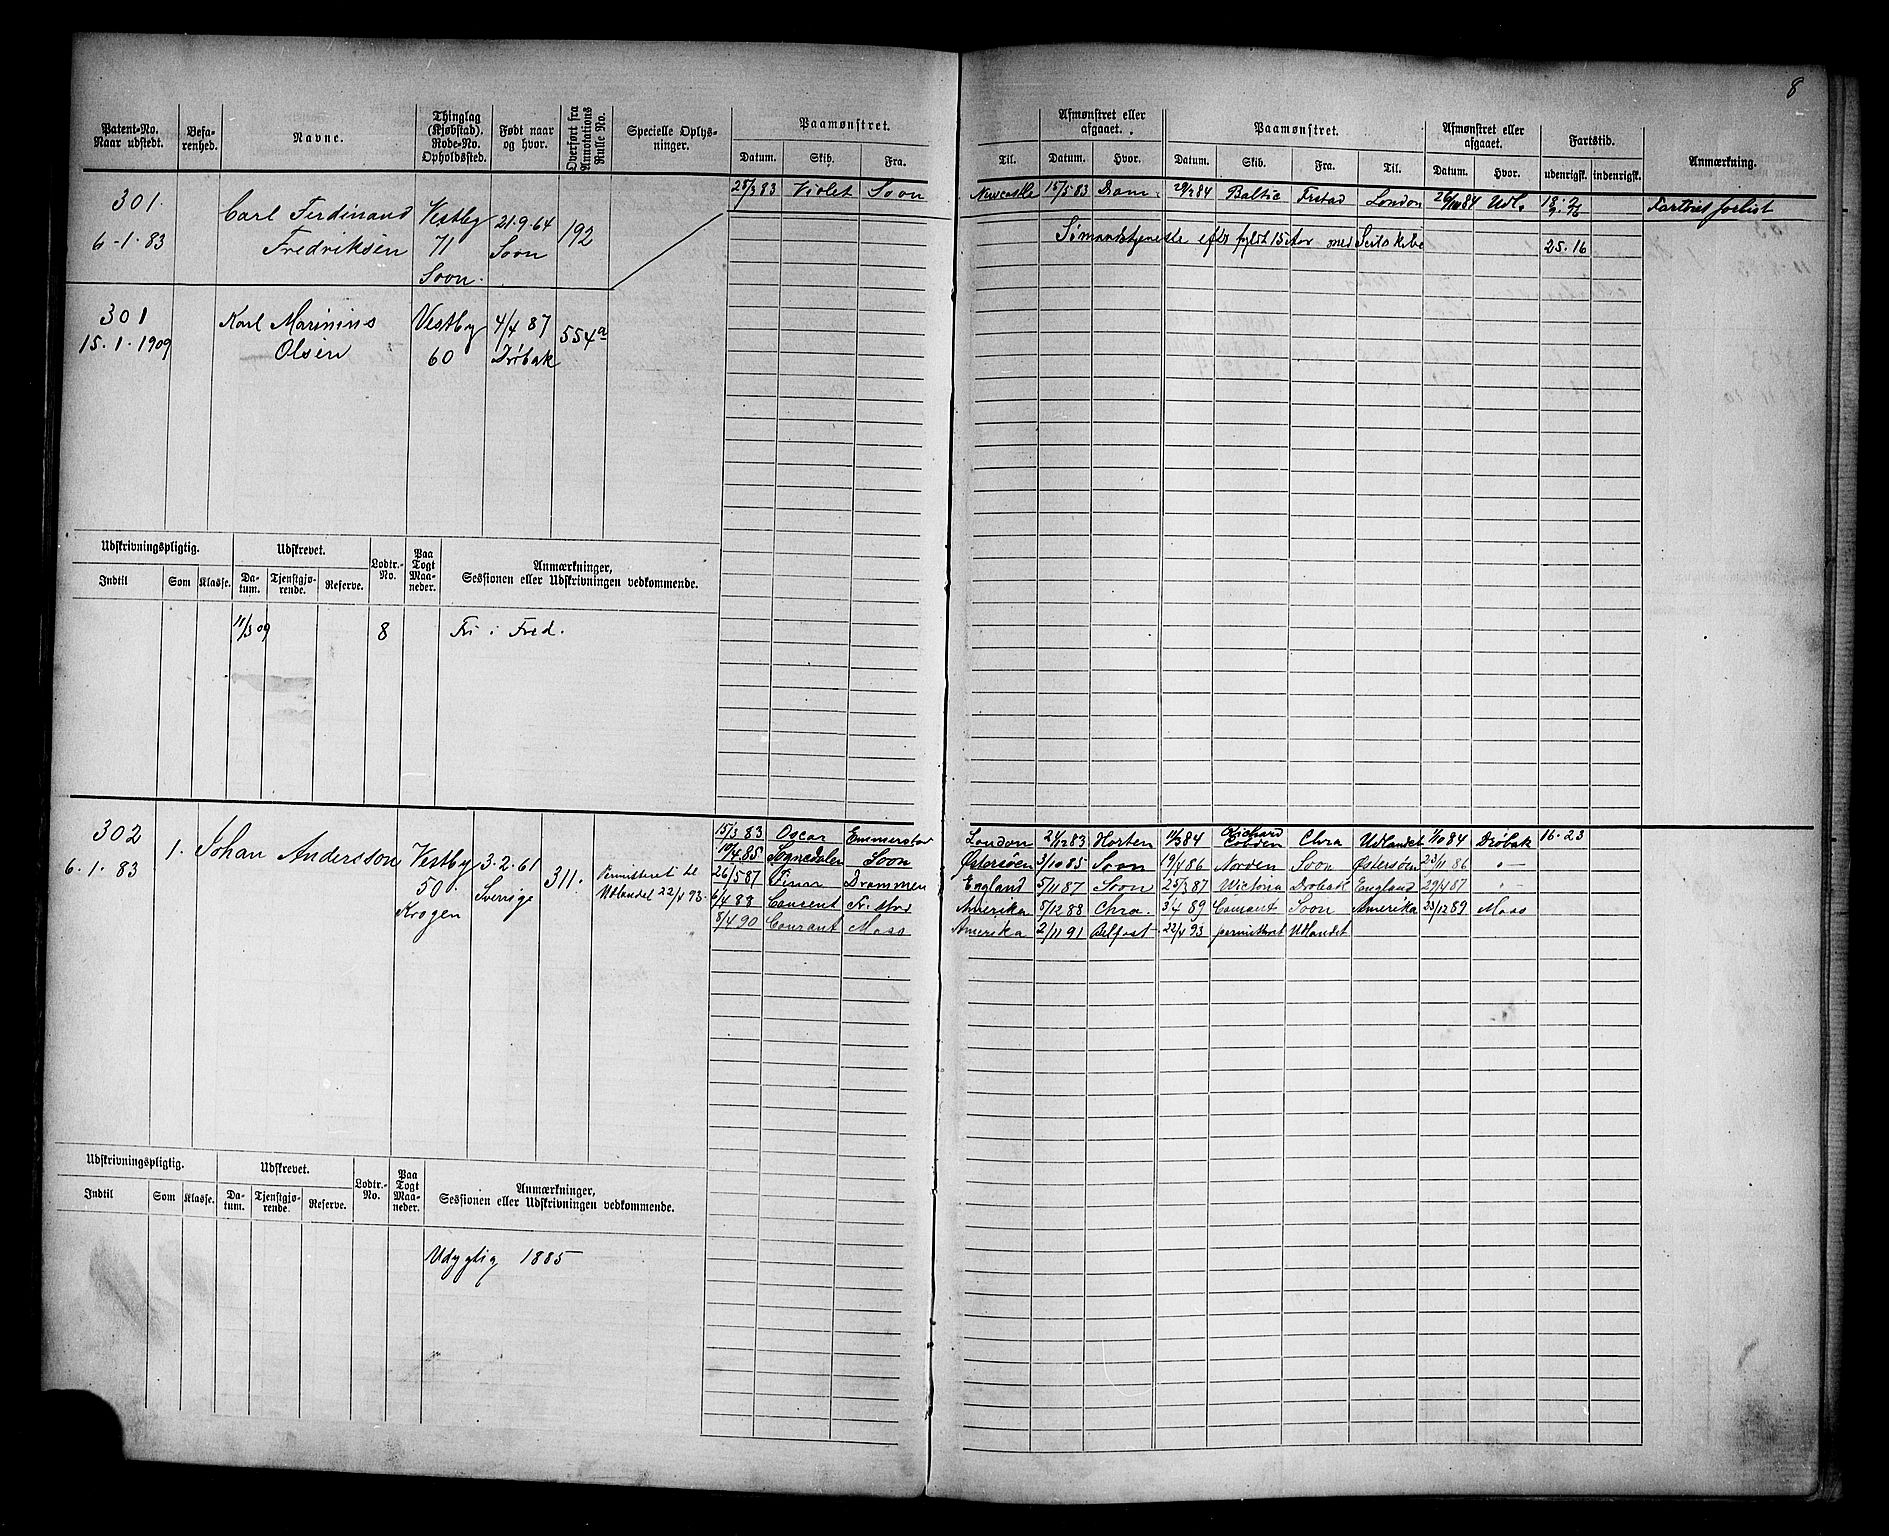 8
Patent-No. Naar udstedt.
Befa-renhed.
Navne.
Thinglag (Kjøbstad). Rode-No. Opholdssted.
Født naar og hvor.
Overført fra Annotations Rulle No.
Specielle Oplys-ninger.
Paamønstret.
Datum. Skib. Fra.
Til.
Afmønstret eller afgaaet.
Datum. Hvor.
Paamønstret.
Datum. Skib. Fra. Til.
Afmønstret eller afgaaet.
Datum. Hvor.
Fartstid.
udenrigsk. indenrigsk.
Anmærkning.
301. Carl Ferdinand Vestby 21.9.64 192 25/3 83 Violet Soon Newcastle 15/5 83 Dram. 29/2 84 Baltic Frstad London 26/10 84 Udl.
6.1.83 Fredriksen 71 Soon
Soon.
Sømandstjeneste efter fyldt 15 Aar med Seilskibe 25.16
301 Karl Marinius Vestby 4/4 87 554a
15.1.1909 Olsen 60 Drøbak
Udskrivningspligtig.
Indtil Som Klasse.
Udskrevet.
Da-tum. Tjenstgjø-rende. Reserve.
Lodtr.-No.
Paa Togt Maa-neder.
Anmærkninger, Sessionen eller Udskrivningen vedkommende.
11/3 09 8 Fri i Fred.
302 1. Johan Andersson Vestby 3.2.61 311.
6.1.83 50. Sverige
Krogen
Permitteret til
Udlandet 22/4 93.
15/3 83 Oscar Emmerstad London 24/12 83 Horten 11/3 84 Richard Cobden Chra Udlandet 1/10 84 Drøbak 16.23
10/4 85 Sognedalen Soon Østersøen 3/10 85 Soon 19/4 86 Norden Soon Østersøen 23/11 86 -"-
26/5 87 Einar Drammen England 5/11 87 Soon 25/3 87 Victoria Drøbak England 29/4 87 -"-
6/4 88 Consent Amerika 5/12 88 Chra. 3/4 89 Consent Soon Amerika 23/12 89 Moss
8/4 90 Courant Moss Amerika 2/11 91 Belfast 22/4 93 permitteret Udlandet
Udskrivningspligtig.
Indtil Som Klasse.
Udskrevet.
Da-tum. Tjenstgjø-rende. Reserve.
Lodtr.-No.
Paa Togt Maa-neder.
Anmærkninger, Sessionen eller Udskrivningen vedkommende.
Udygtig 1885